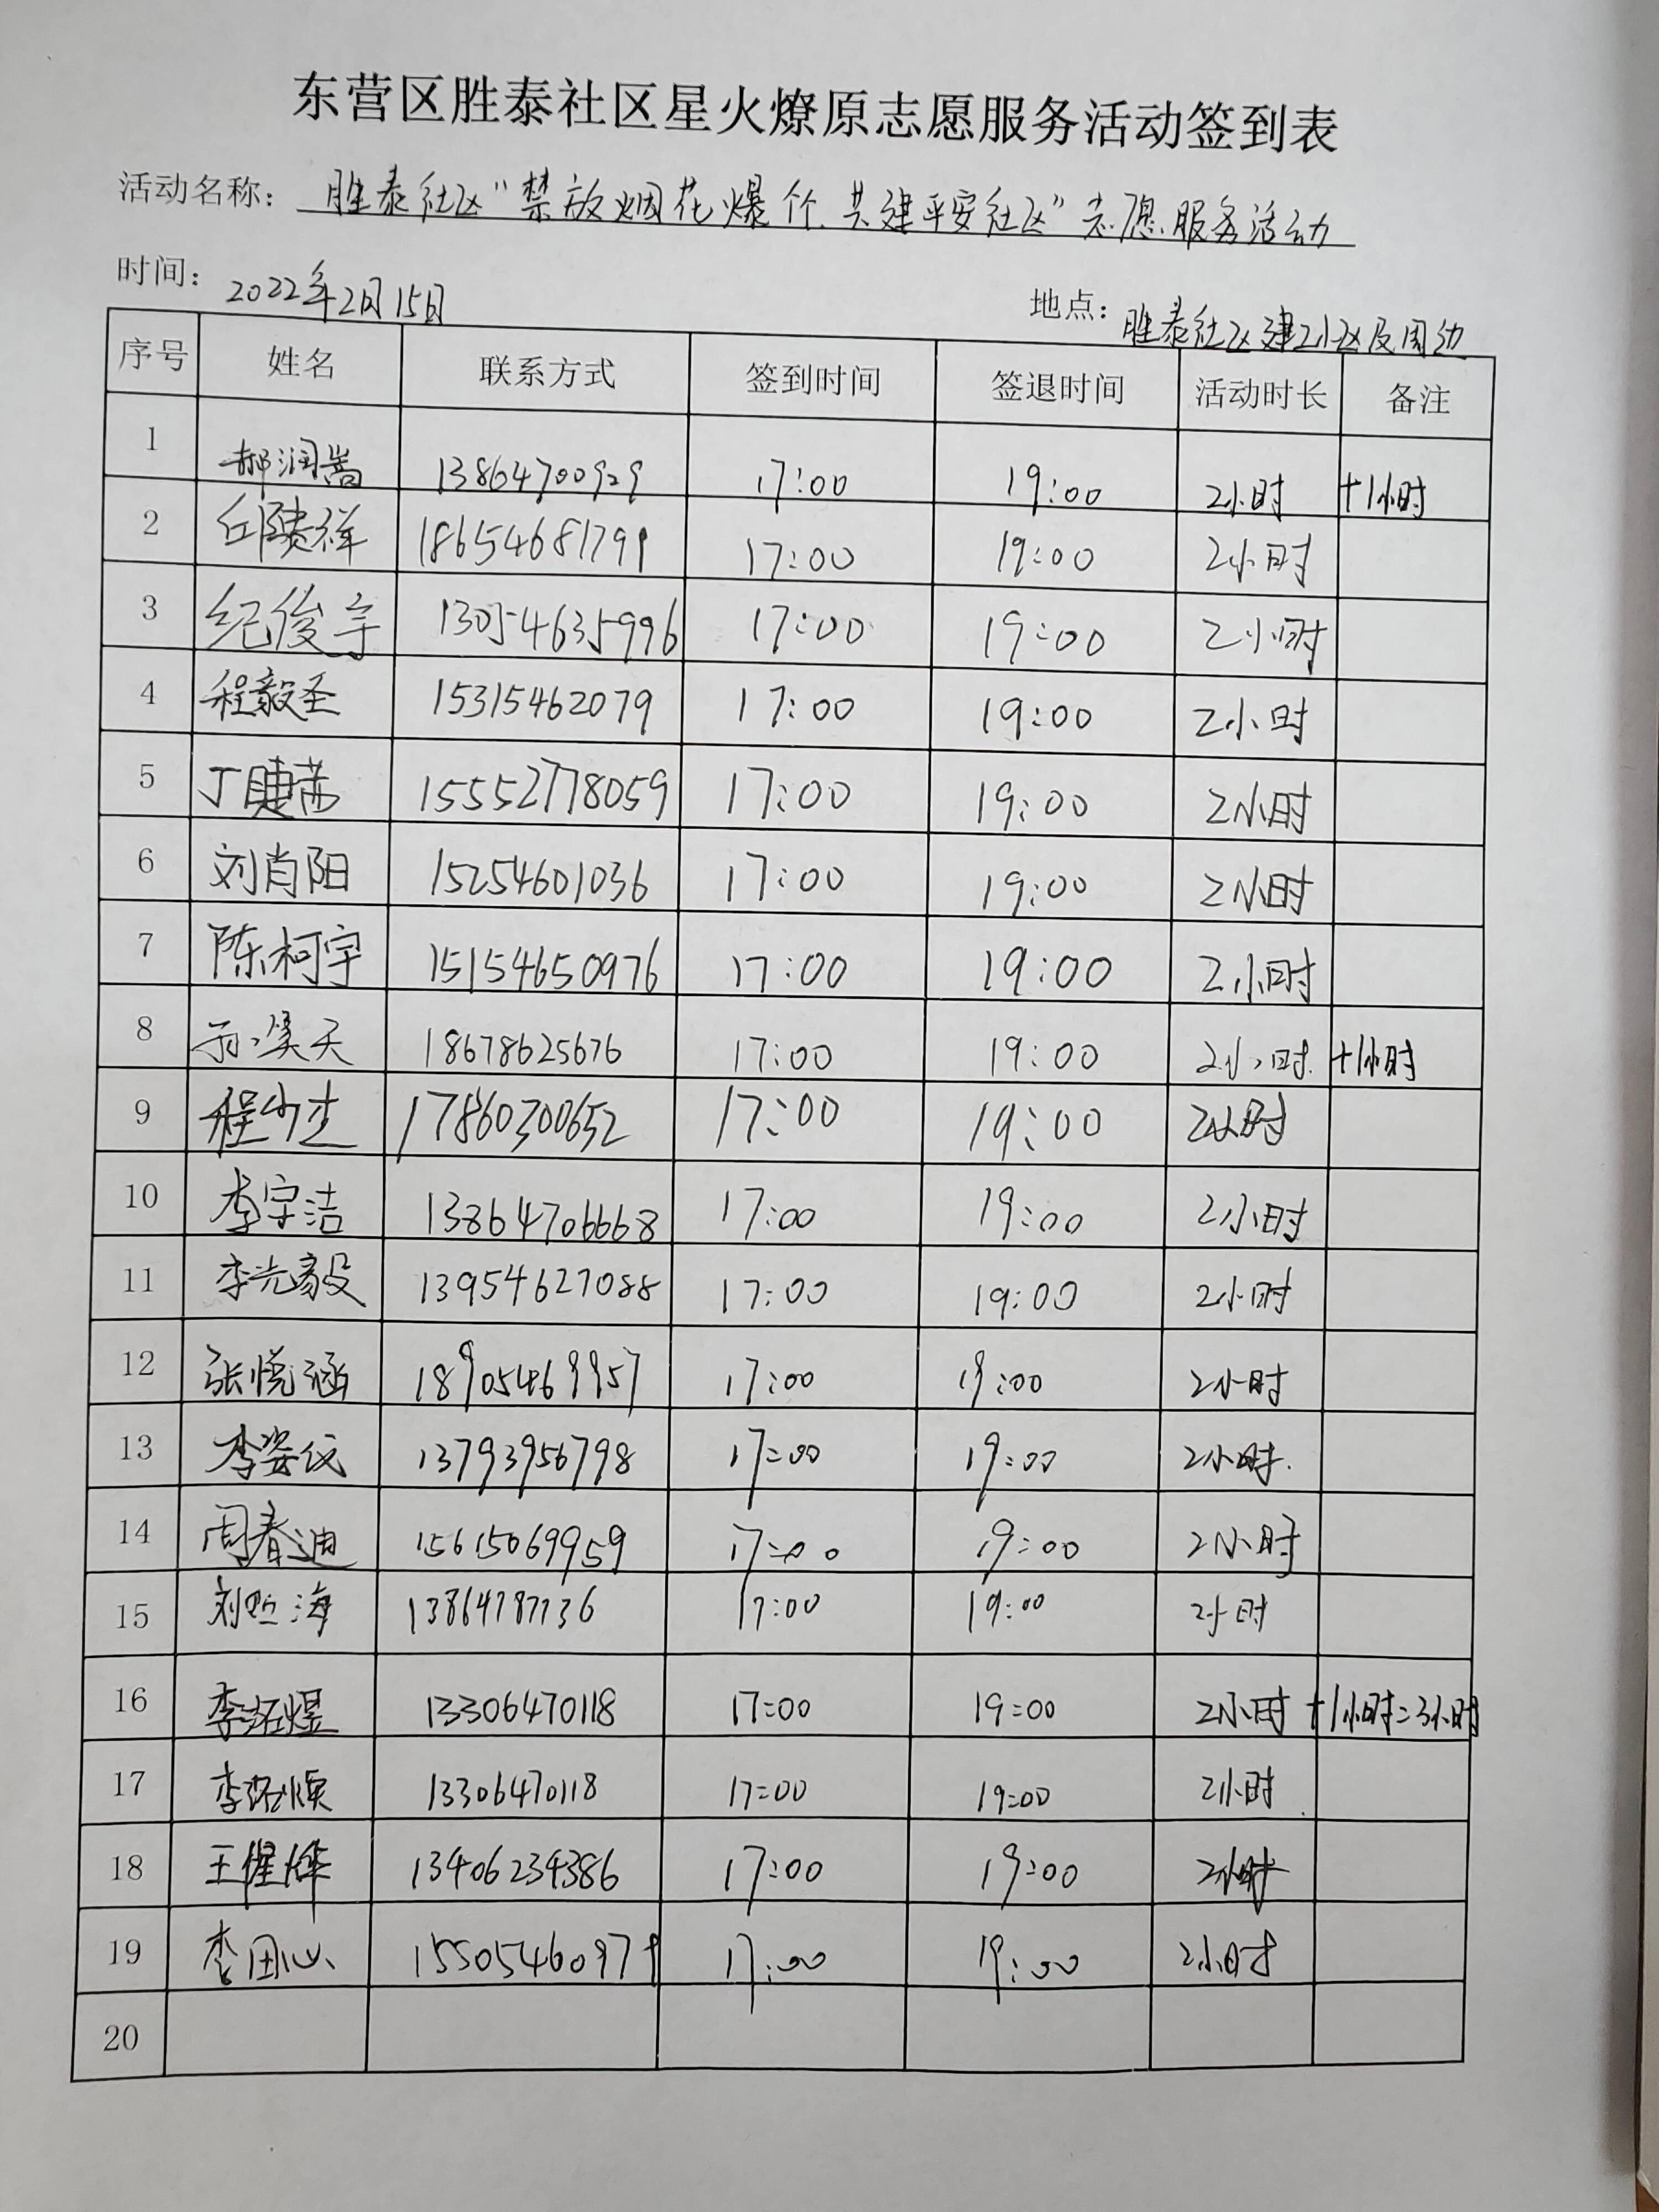 东营区胜泰社区星火燎原志愿服务活动签到表
活动名称：胜泰社区"禁放烟花爆竹 共建平安社区"志愿服务活动
时间：2022年2月15日 地点：胜泰社区建工小区及周边
序号 姓名 联系方式 签到时间 签退时间 活动时长 备注
1 郝润嵩 13864700929 17:00 19:00 2小时 +1小时
2 18654681791 17:00 19:00 2小时
3 纪俊宇 13054635996 17:00 19:00 2小时
4 程毅圣 15315462079 17:00 19:00 2小时
5 丁睫茜 15552778059 17:00 19:00 2小时
6 刘肖阳 15254601036 17:00 19:00 2小时
7 陈柯宇 15154650976 17:00 19:00 2小时
8 18678625676 17:00 19:00 2小时 +1小时
9 程少杰 17860300652 17:00 19:00 2小时
10 李宇洁 13864706668 17:00 19:00 2小时
11 李光毅 13954627088 17:00 19:00 2小时
12 张悦涵 18905469957 17:00 19:00 2小时
13 李姿仪 13793956798 17:00 19:00 2小时.
14 周春迪 15615069959 17:00 19:00 2小时
15 13864787736 17:00 19:00 2小时
16 13306470118 17:00 19:00 2小时 +1小时=3小时
17 13306470118 17:00 19:00 2小时
18 13406234386 17:00 19:00 2小时
19 李田心 15505460979 17:00 19:00 2小时
20